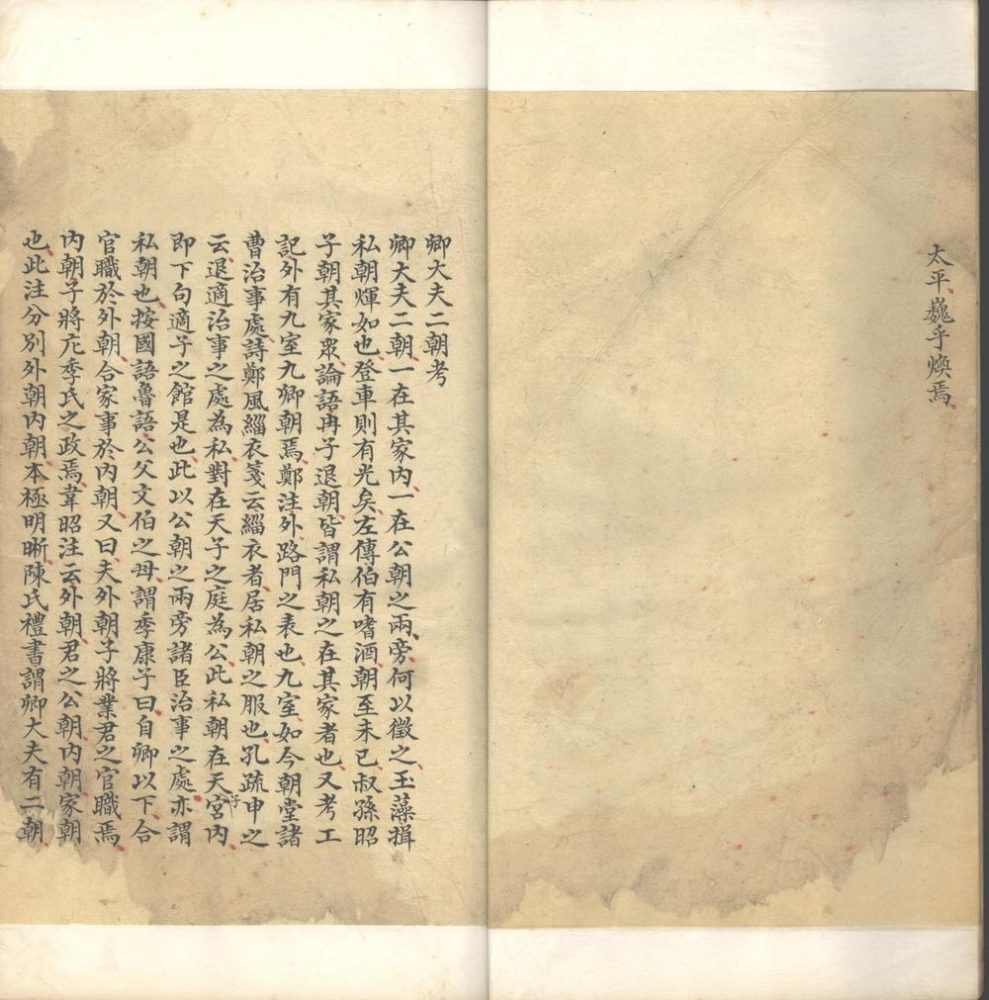 太平、巍乎煥焉、
卿大夫二朝考
卿大夫二朝、一在其家内、一在公朝之兩、旁何以徵之、玉藻揖
私朝煇如也、登車則有光矣、左傳伯有嗜酒、朝至未已、叔孫昭
子朝其家眾、論語冉子退朝、皆謂私朝之在其家者也、又考工
記、外有九室九卿朝焉、鄭注外、路門之表也、九室、如今朝堂諸
曹治事處、詩鄭風緇衣箋云、緇衣者、居私朝之服也、孔疏申之
云、退適治事之處為私、對在天子之庭為公、此私朝在天子宮内、
即下句適子之館是也、此以公朝之兩旁諸臣治事之處、亦謂
私朝也、按國語魯語、公父文伯之母、謂季康子曰、自卿以下、合
官職於外朝、合家事於内朝、又曰、夫外朝、子將業君之官職焉、
内朝、子將庀季氏之政焉、韋昭注云、外朝、君之公朝、内朝、家朝
也、此注分別外朝内朝、本極明晰、陳氏禮書謂卿大夫有二朝、